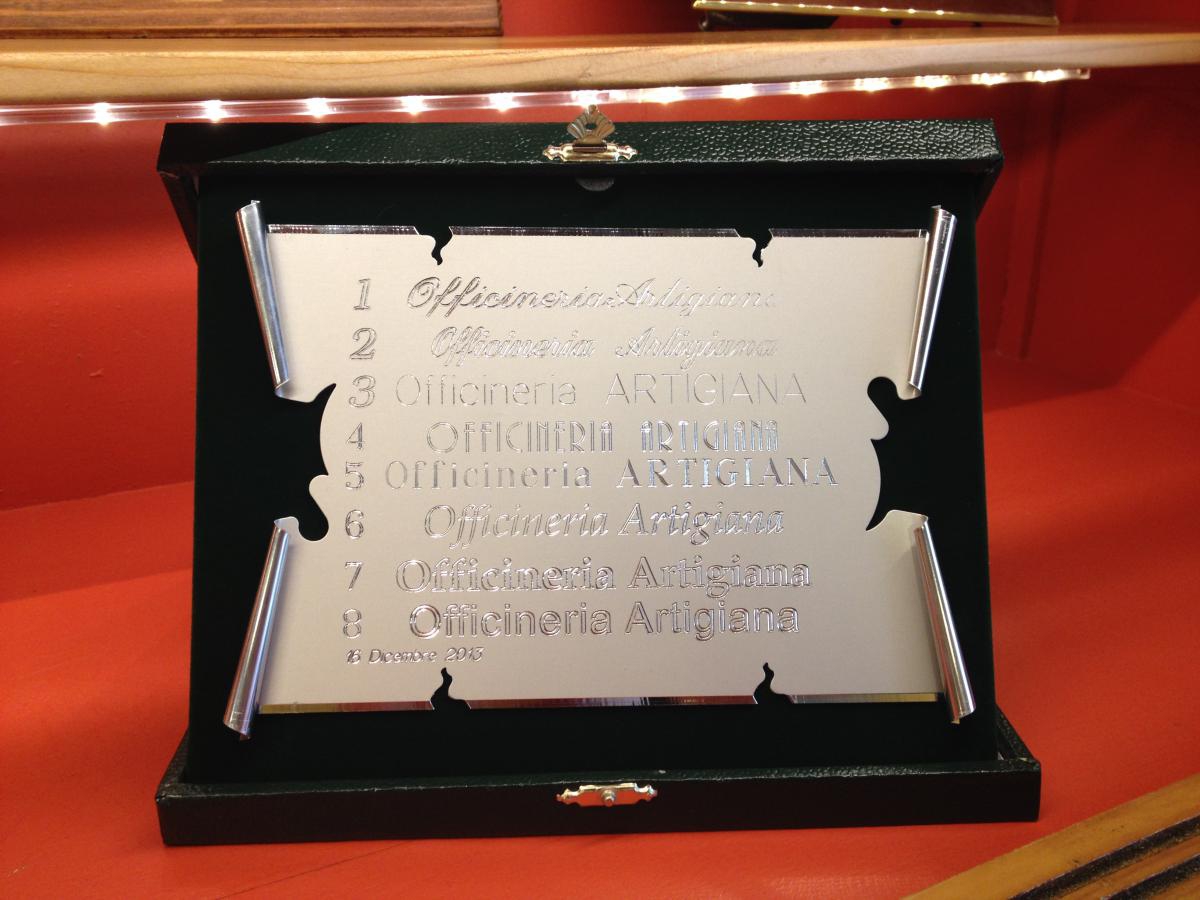 1 Officineria Artigiana
2 Officineria Artigiana
3 Officineria ARTIGIANA
4 OFFICINERIA ARTIGIANA
5 Officineria ARTIGIANA
6 Officineria Artigiana
7 Officineria Artigiana
8 Officineria Artigiana
16 Dicembre 2013